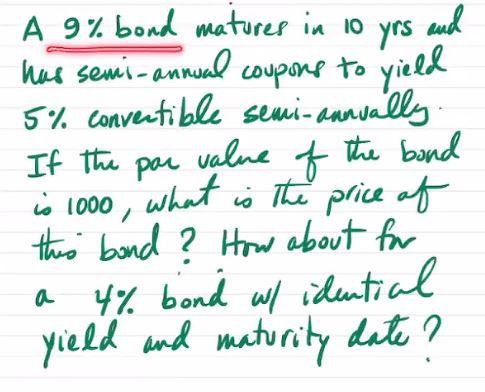 A 9% bond matures in 10 yrs and
has semi-annual coupons to yield
5% convertible semi-annually.
If the par value of the bond
is 1000, what is the price of
this bond? How about for
a 4% bond w/ identical
yield and maturity date?